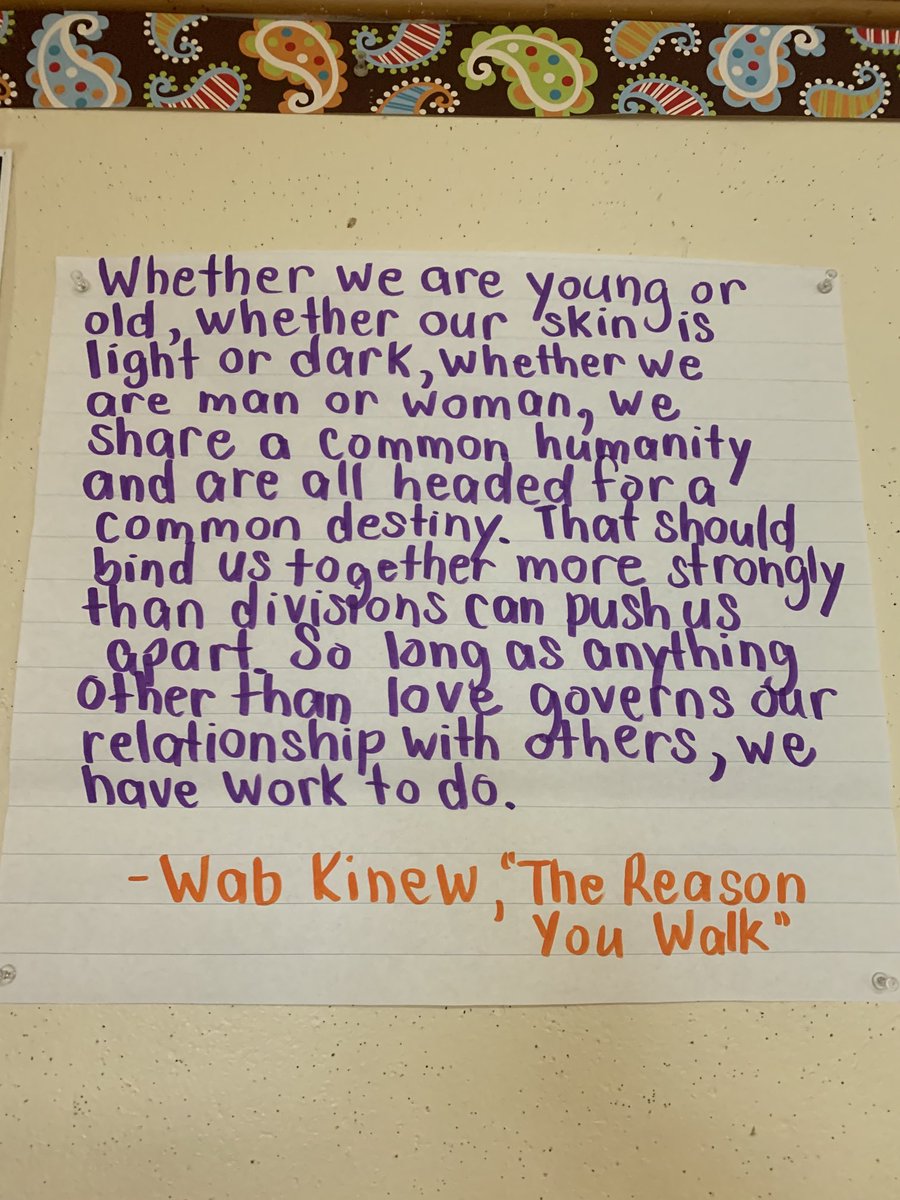 Whether we are young or
old, whether our skin is
light or dark, whether we
are man or woman, we
share a common humanity
and are all headed for a
common destiny. That should
bind us together more strongly
than divisions can push us
apart. So long as anything
other than love governs our
relationship with others, we
have work to do.
- Wab Kinew, "The Reason
You Walk"